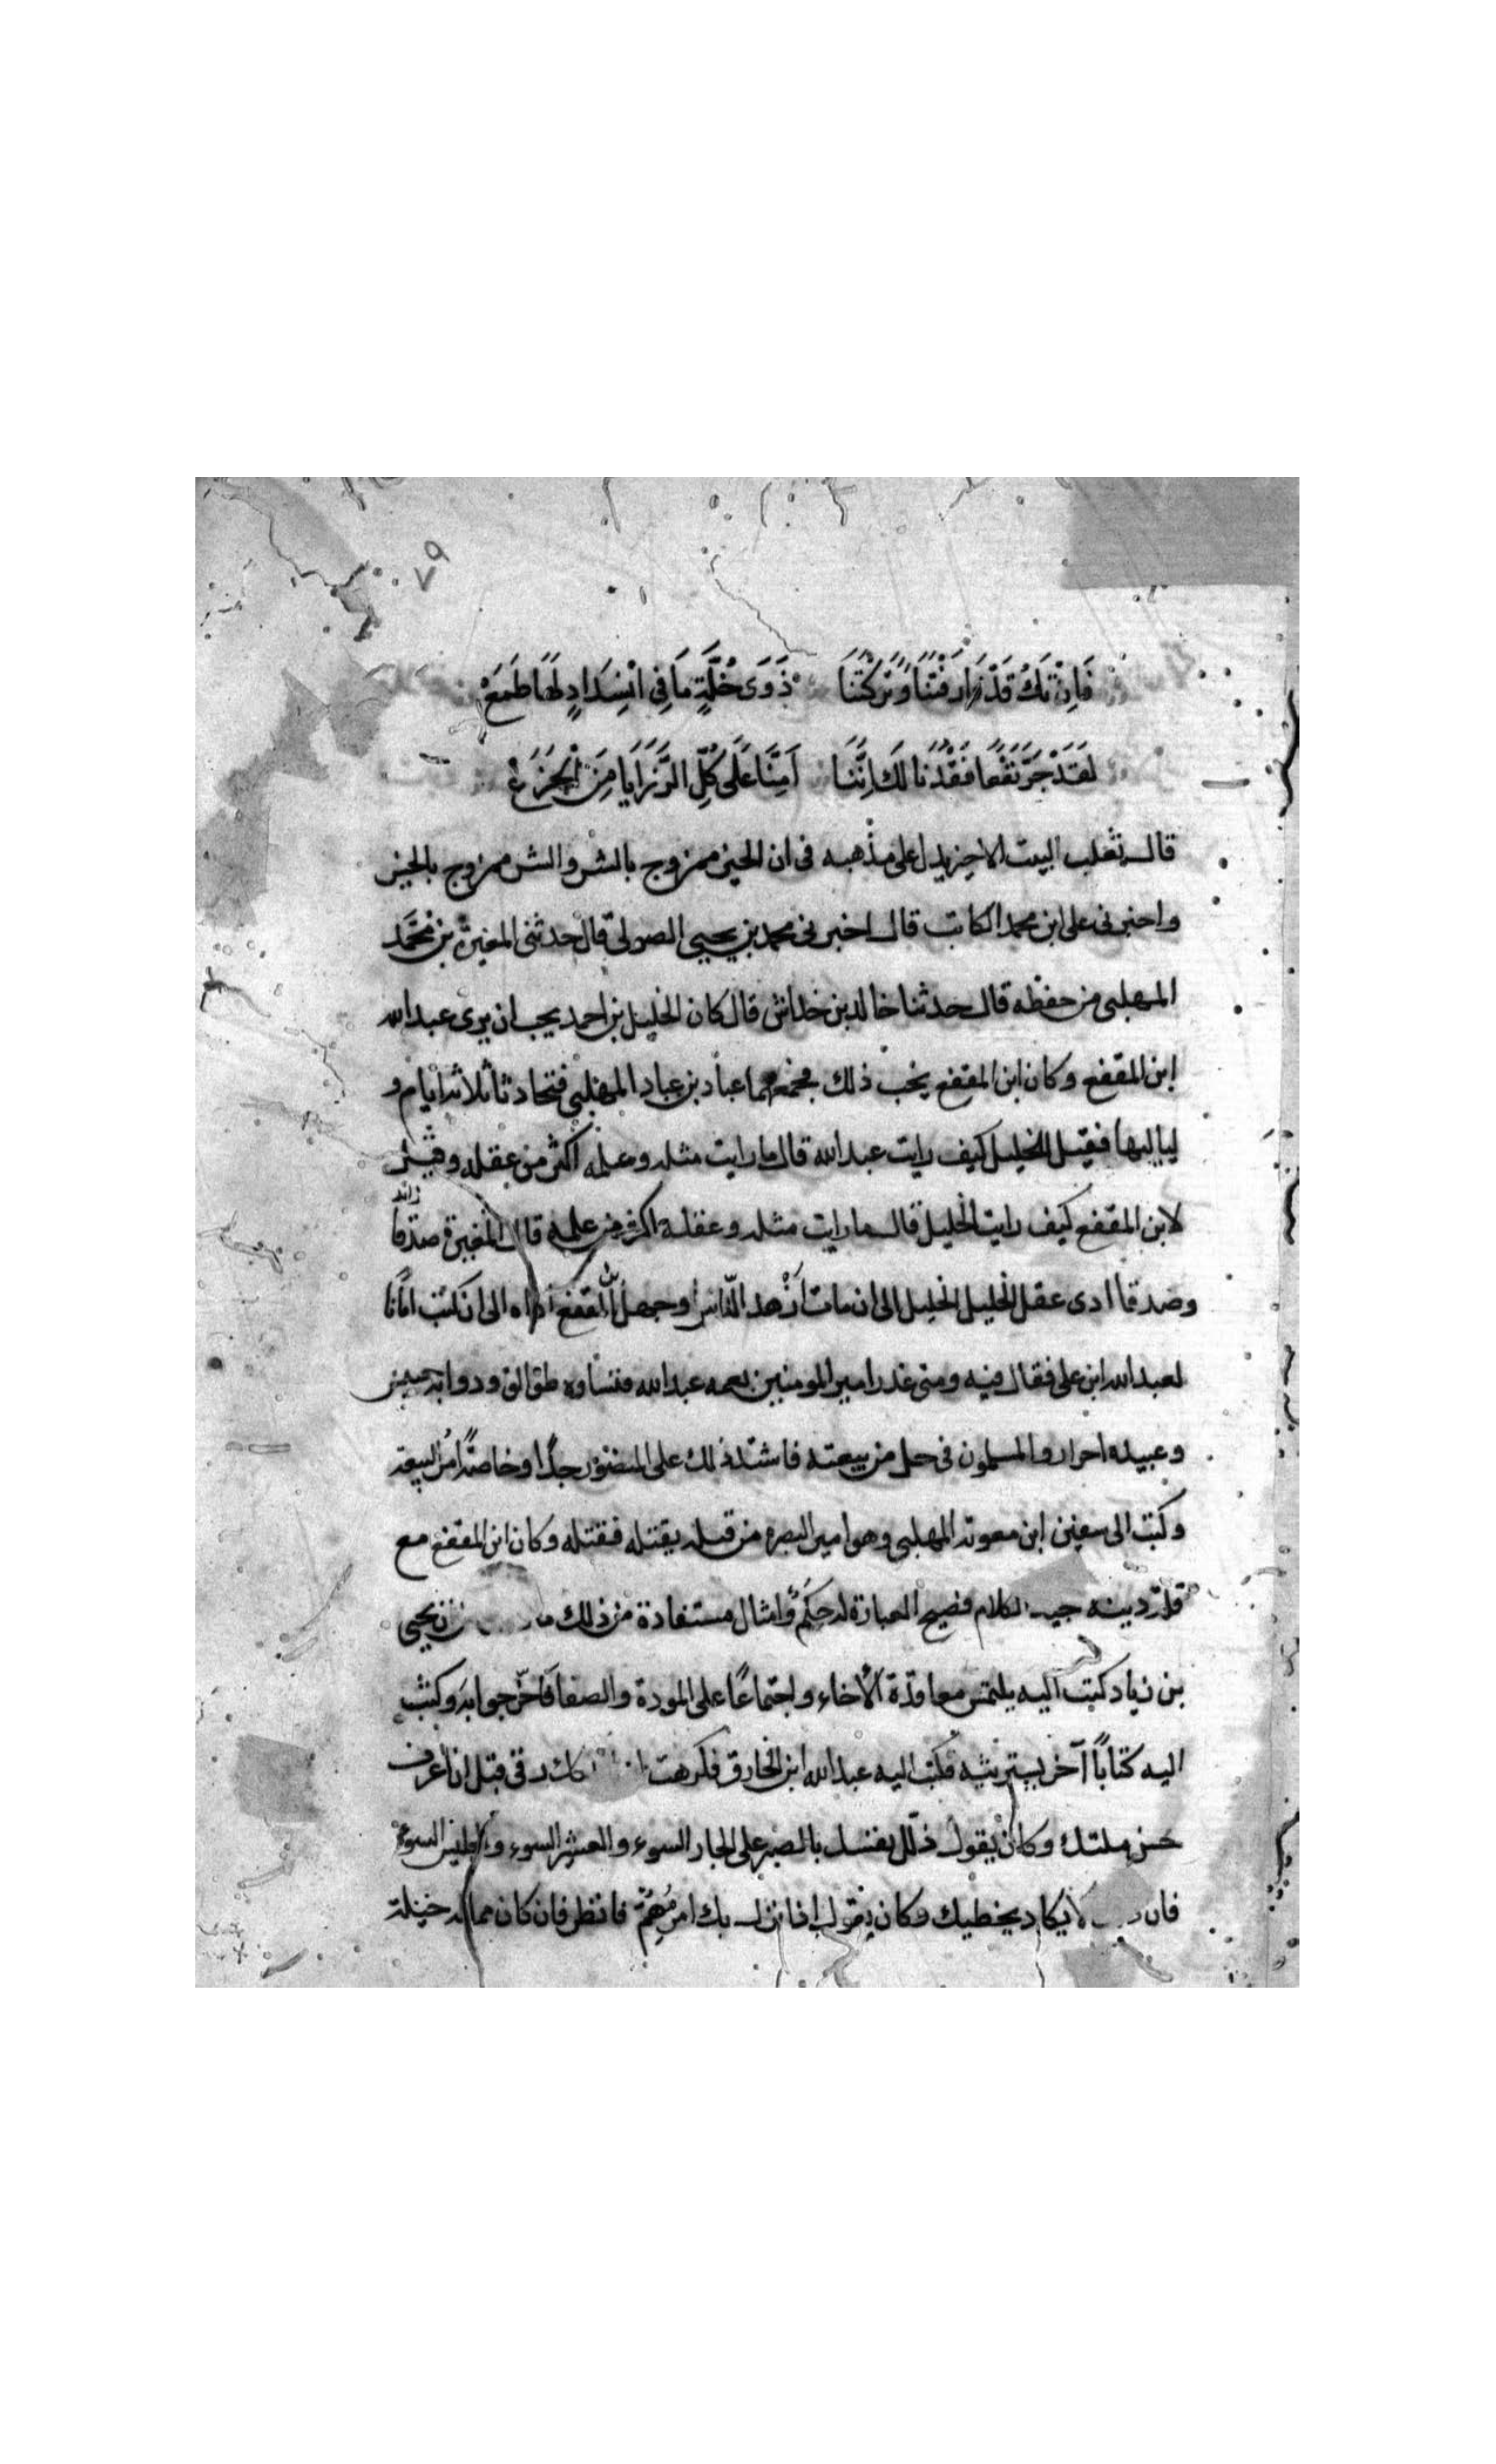 ٧٩
فَاِنْ تَكُ قَدْ فَارَقْتَنَا وَتَرَكْتَنَا ذَوَى خُلَّةٍ مَا فِى انْسِدَادٍ لَهَا طَمَعْ
لَقَدْ جَرَّ نَفْعًا فَقْدُنَا لَكَ اِنَّنَا اَمِنَّا عَلَى كُلِّ الرَّزَايَا مِنَ الْجَزَعْ
قال ثعلب البيت الاخير يدل على مذهبه فى ان الخير ممزوج بالشر والشر ممزوج بالخير
واخبرنى على ابن محمد الكاتب قال اخبرنى محمد بن يحيى الصولى قال حدثنى المغيرة بن محمَّد
المهلبى من حفظه قال حدثنا خالد بن خداش قال كان الخليل بن احمد يحب ان يرى عبد الله
ابن المقفع وكان ابن المقفع يحب ذلك فجمعهما عباد بن عباد المهلبى فتحادثا ثلاثة ايام و
لياليها فقيل للخليل كيف رايت عبد الله قال ما رايت مثله وعلمه اكثر من عقله وقيل
لابن المقفع كيف رايت الخليل قال ما رايت مثله وعقله اكثر من علمه قال المغيرة صدقا
زائد
وصدقا ادى عقل الخليل الخليل الى ان مات ازهد الناس وجهل ابن المقفع اداه الى ان كتب امانًا
لعبد الله ابن على فقال فيه ومتى غدر امير المومنين بعمه عبد الله فنساوه طوالق ودوابه حبيس
وعبيده احرار والمسلمون فى حل من بيعته فاشتد ذلك على المنصور جدًا وخاصّة امر البيعة
وكتب الى سفين ابن معوية المهلبى وهو امير البصره من قبله بقتله فقتله وكان ابن المقفع مع
قلة دينه جيد الكلام فصيح العبارة له حِكَمٌ وامثال مستفادة من ذلك ما ان يحيى
بن زياد كتب اليه يلتمس معاقدة الاخاء واجتماعًا على المودة والصفا فاخّر جوابه وكتب
اليه كتابًا آخر يستريثه فكتب اليه عبد الله ابن الخارق فكرهت ان رقى قبل ان اعرف
حسن ملتك وكان يقول ذلل نفسك بالصبر على الجار السوء والعشير السوء والجليس السوء
فان لا يكاد يخطيك وكان يقول اذا نزل بك امر مُهِمٌّ فانظر فان كان مما له حيلة